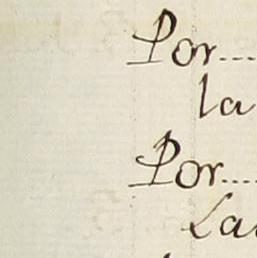 Por....
la
Por....
La